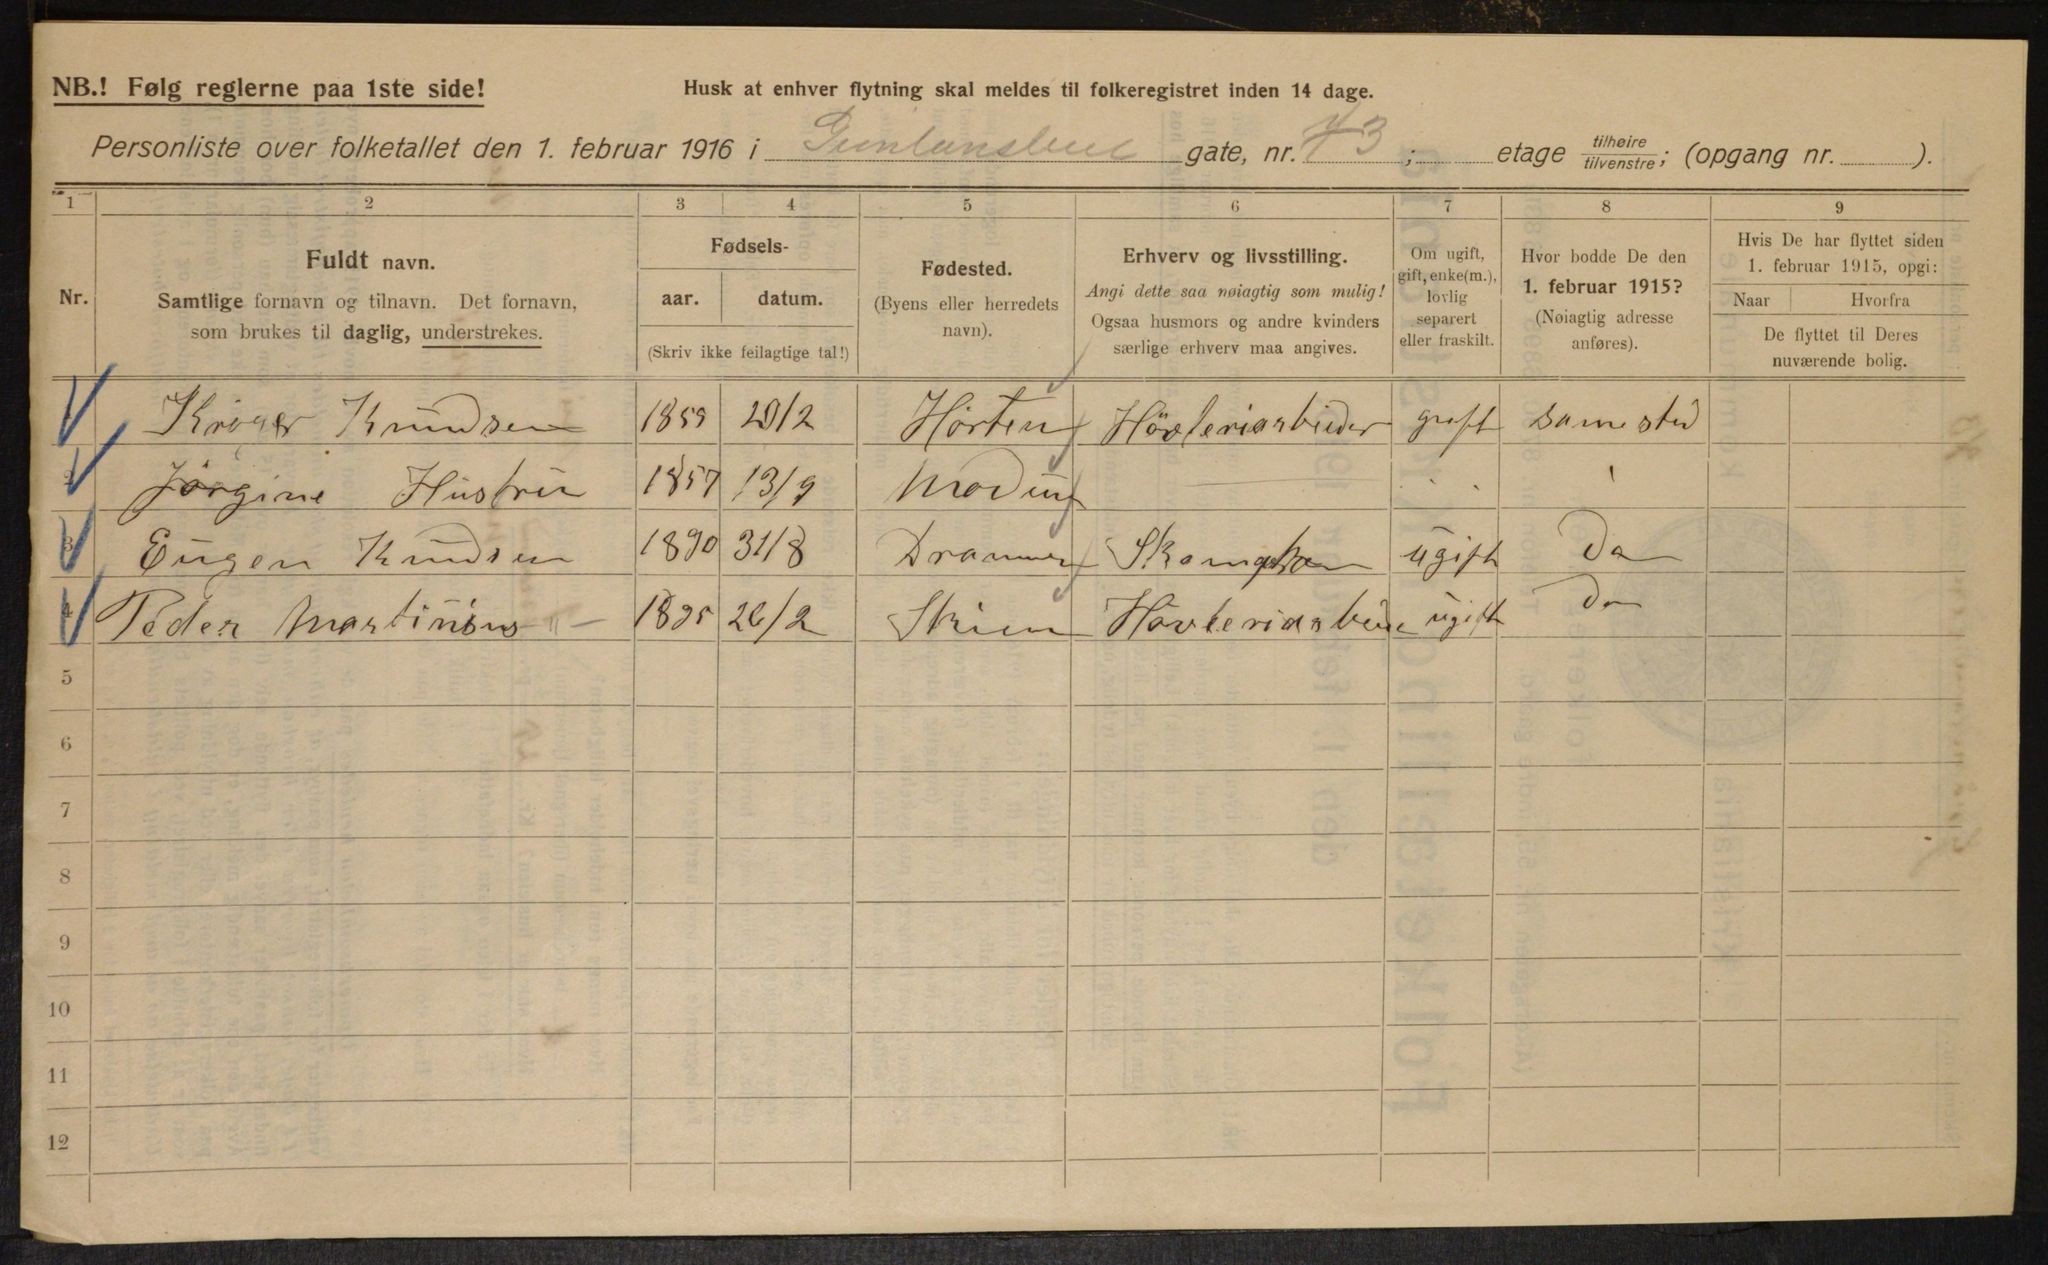 NB.! Følg reglerne paa 1ste side!
Husk at enhver flytning skal meldes til folkeregistret inden 14 dage.
Personliste over folketallet den 1. februar 1916 i gate, nr. 3; etage tilhøire tilvenstre; (opgang nr. ).
1 2 3 4 5 6 7 8 9
Nr.
Fuldt navn.
Samtlige fornavn og tilnavn. Det fornavn,
som brukes til daglig, understrekes.
Fødsels-
aar. datum.
(Skriv ikke feilagtige tal!)
Fødested.
(Byens eller herredets
navn).
Erhverv og livsstilling.
Angi dette saa nøiagtig som mulig!
Ogsaa husmors og andre kvinders
særlige erhverv maa angives.
Om ugift,
gift, enke(m.),
lovlig
separert
eller fraskilt.
Hvor bodde De den
1. februar 1915?
(Nøiagtig adresse
anføres).
Hvis De har flyttet siden
1. februar 1915, opgi:
Naar Hvorfra
De flyttet til Deres
nuværende bolig.
1 Knudsen 1859 29/2 Horten Hövleriarbeider gift samested
2 Jörgine Hustru 1857 13/9 Modum
3 Eugen Knudsen 1890 31/8 Drammen ugift Do
4 Peder Martinius 1895 26/2 Skien Hövleriarbeider ugift Do
5
6
7
8
9
10
11
12